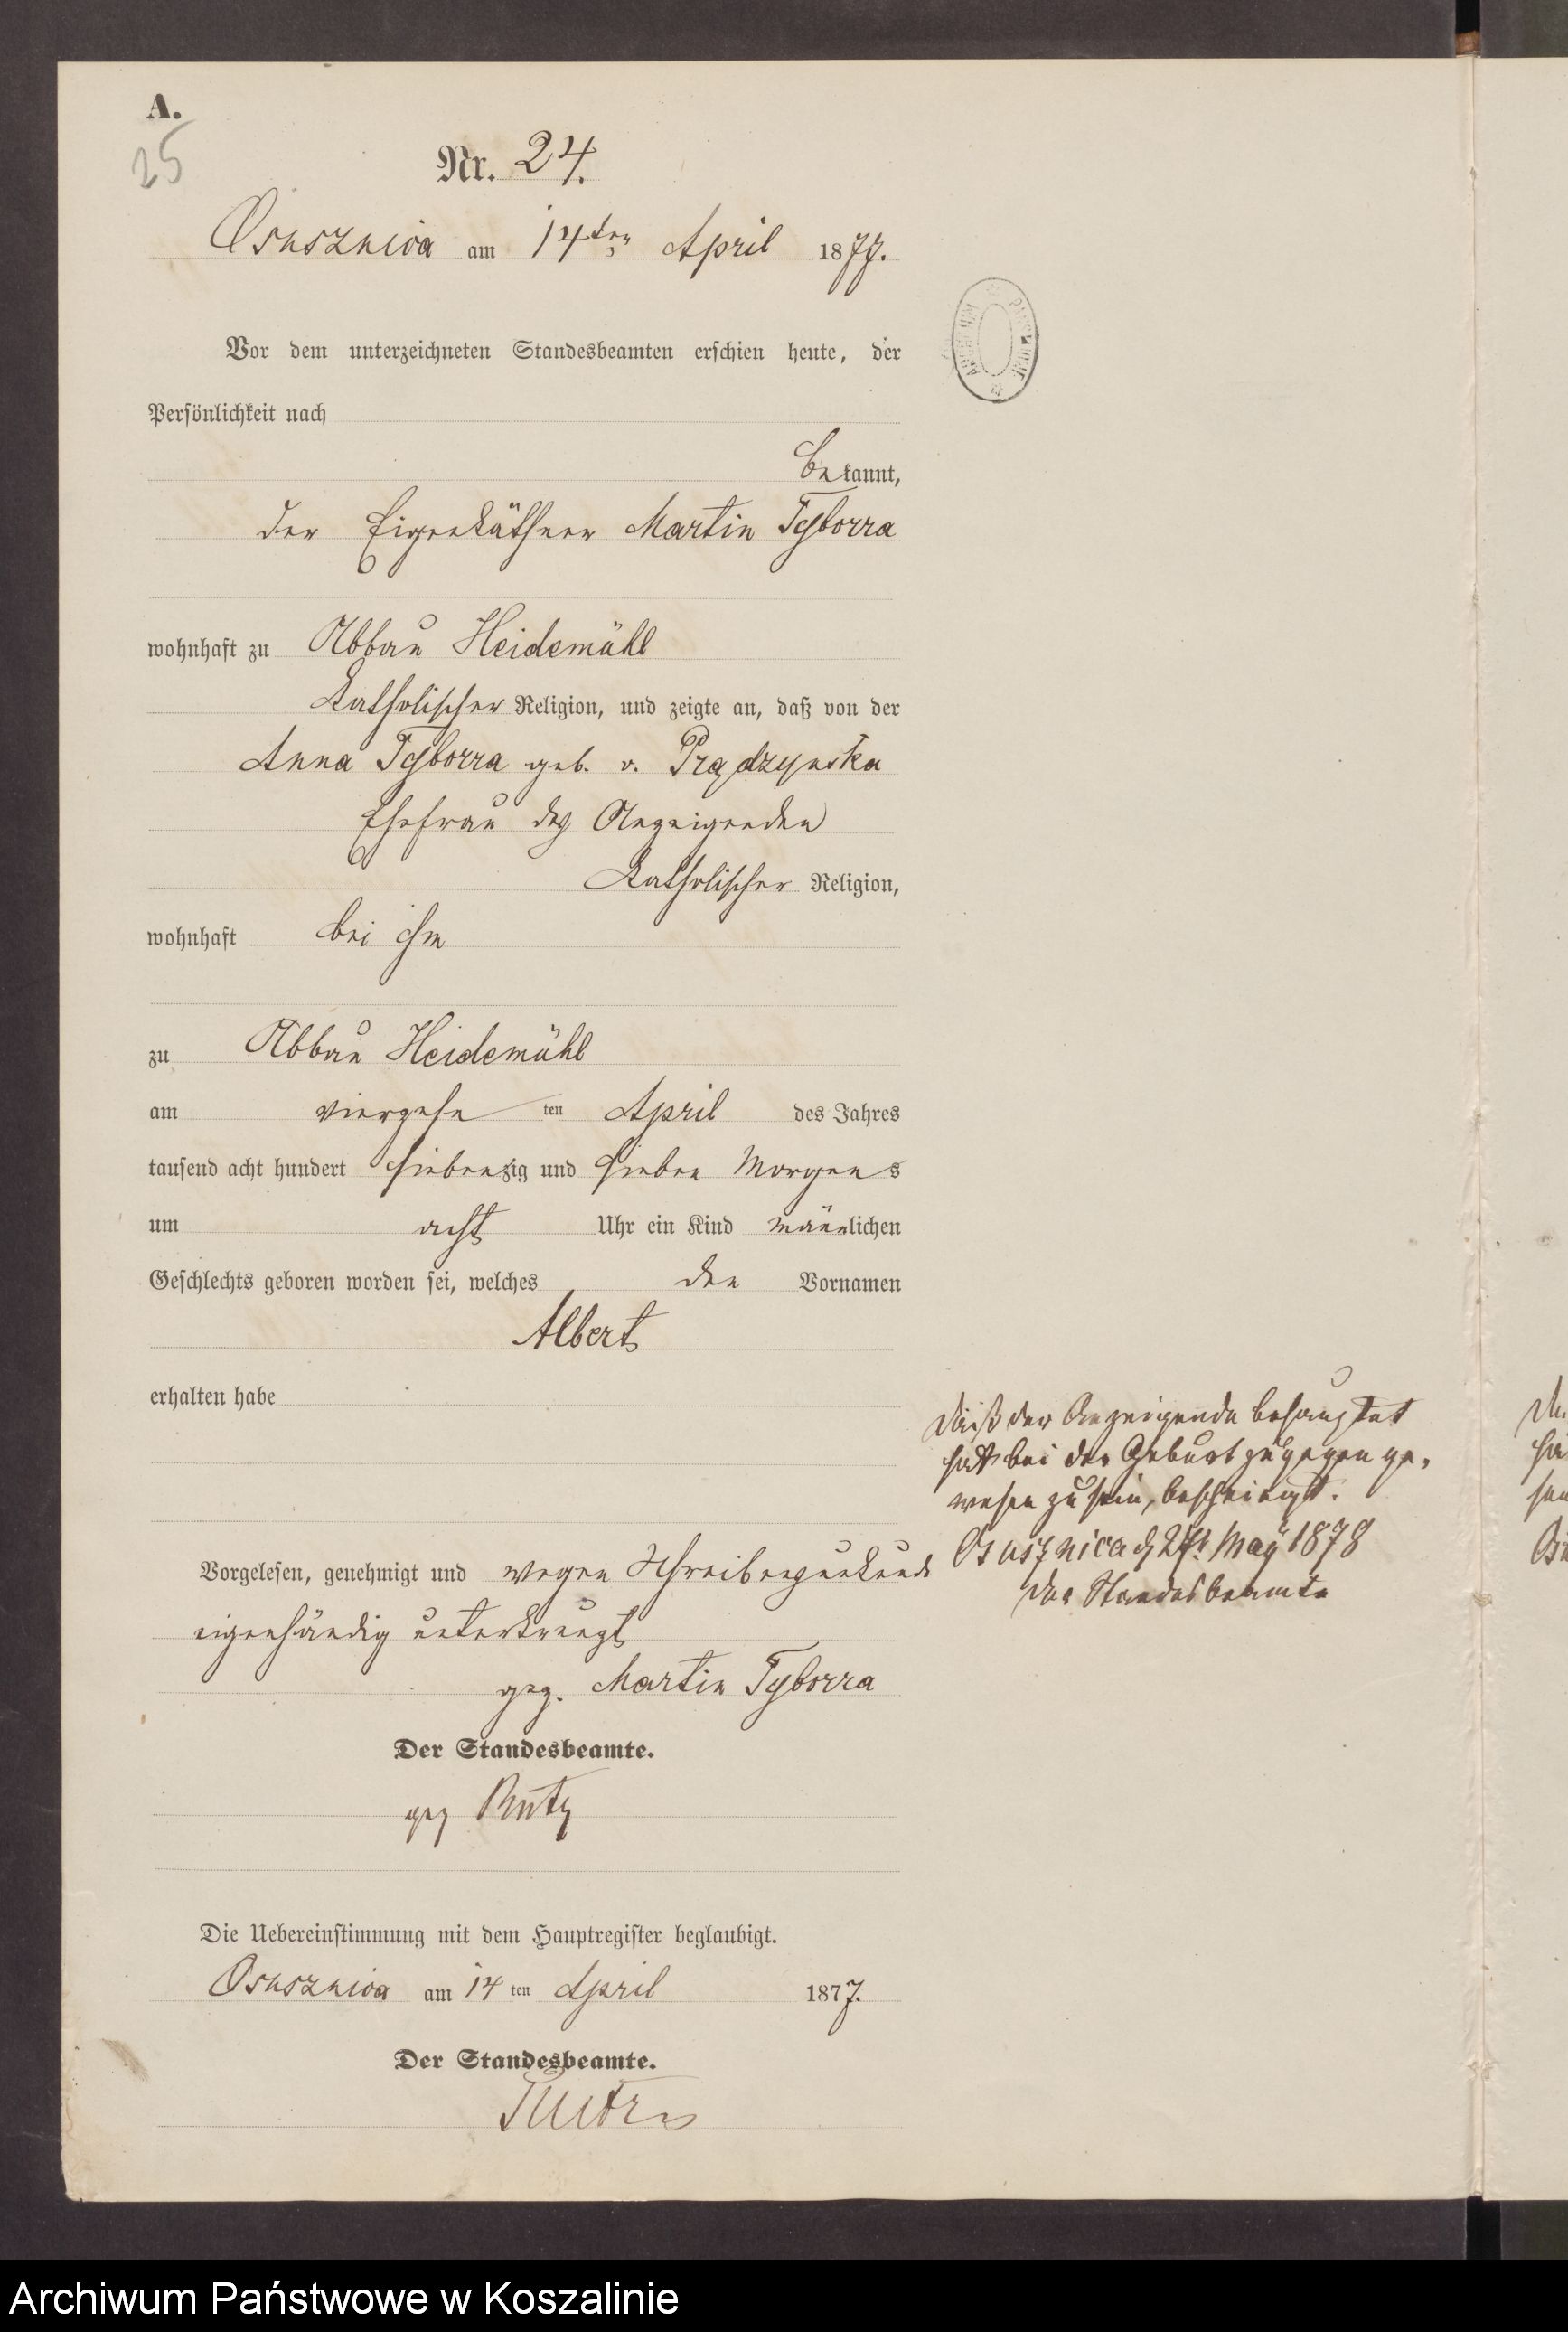 A.
25
Nr. 24.
Osusznica am 14ten April 1877.
Vor dem unterzeichneten Standesbeamten erschien heute, der
Persönlichkeit nach
bekannt,
der Eigenkäthner Martin Tyborra
wohnhaft zu Abbau Heidemühl
katholischer Religion, und zeigte an, daß von der
Anna Tyborra geb. v. Prądzynska
Ehefrau des Anzeigenden
katholischer Religion,
wohnhaft bei ihm
zu Abbau Heidemühl
am vierzehn ten April des Jahres
tausend acht hundert siebenzig und sieben Morgens
um acht Uhr ein Kind männlichen
Geschlechts geboren worden sei, welches den Vornamen
Albert
erhalten habe
Daß der Anzeigende behauptet
hat bei der Geburt zugegen ge-
wesen zu sein, bescheinigt.
Osusznica d 27t May 1878
Der Standesbeamte
Vorgelesen, genehmigt und wegen Schreibensunkunde
eigenhändig unterkreuzt
gez. Martin Tyborra
Der Standesbeamte.
gez
Die Uebereinstimmung mit dem Hauptregister beglaubigt.
Osusznica am 14 ten April 1877.
Der Standesbeamte.
Archiwum Państwowe w Koszalinie